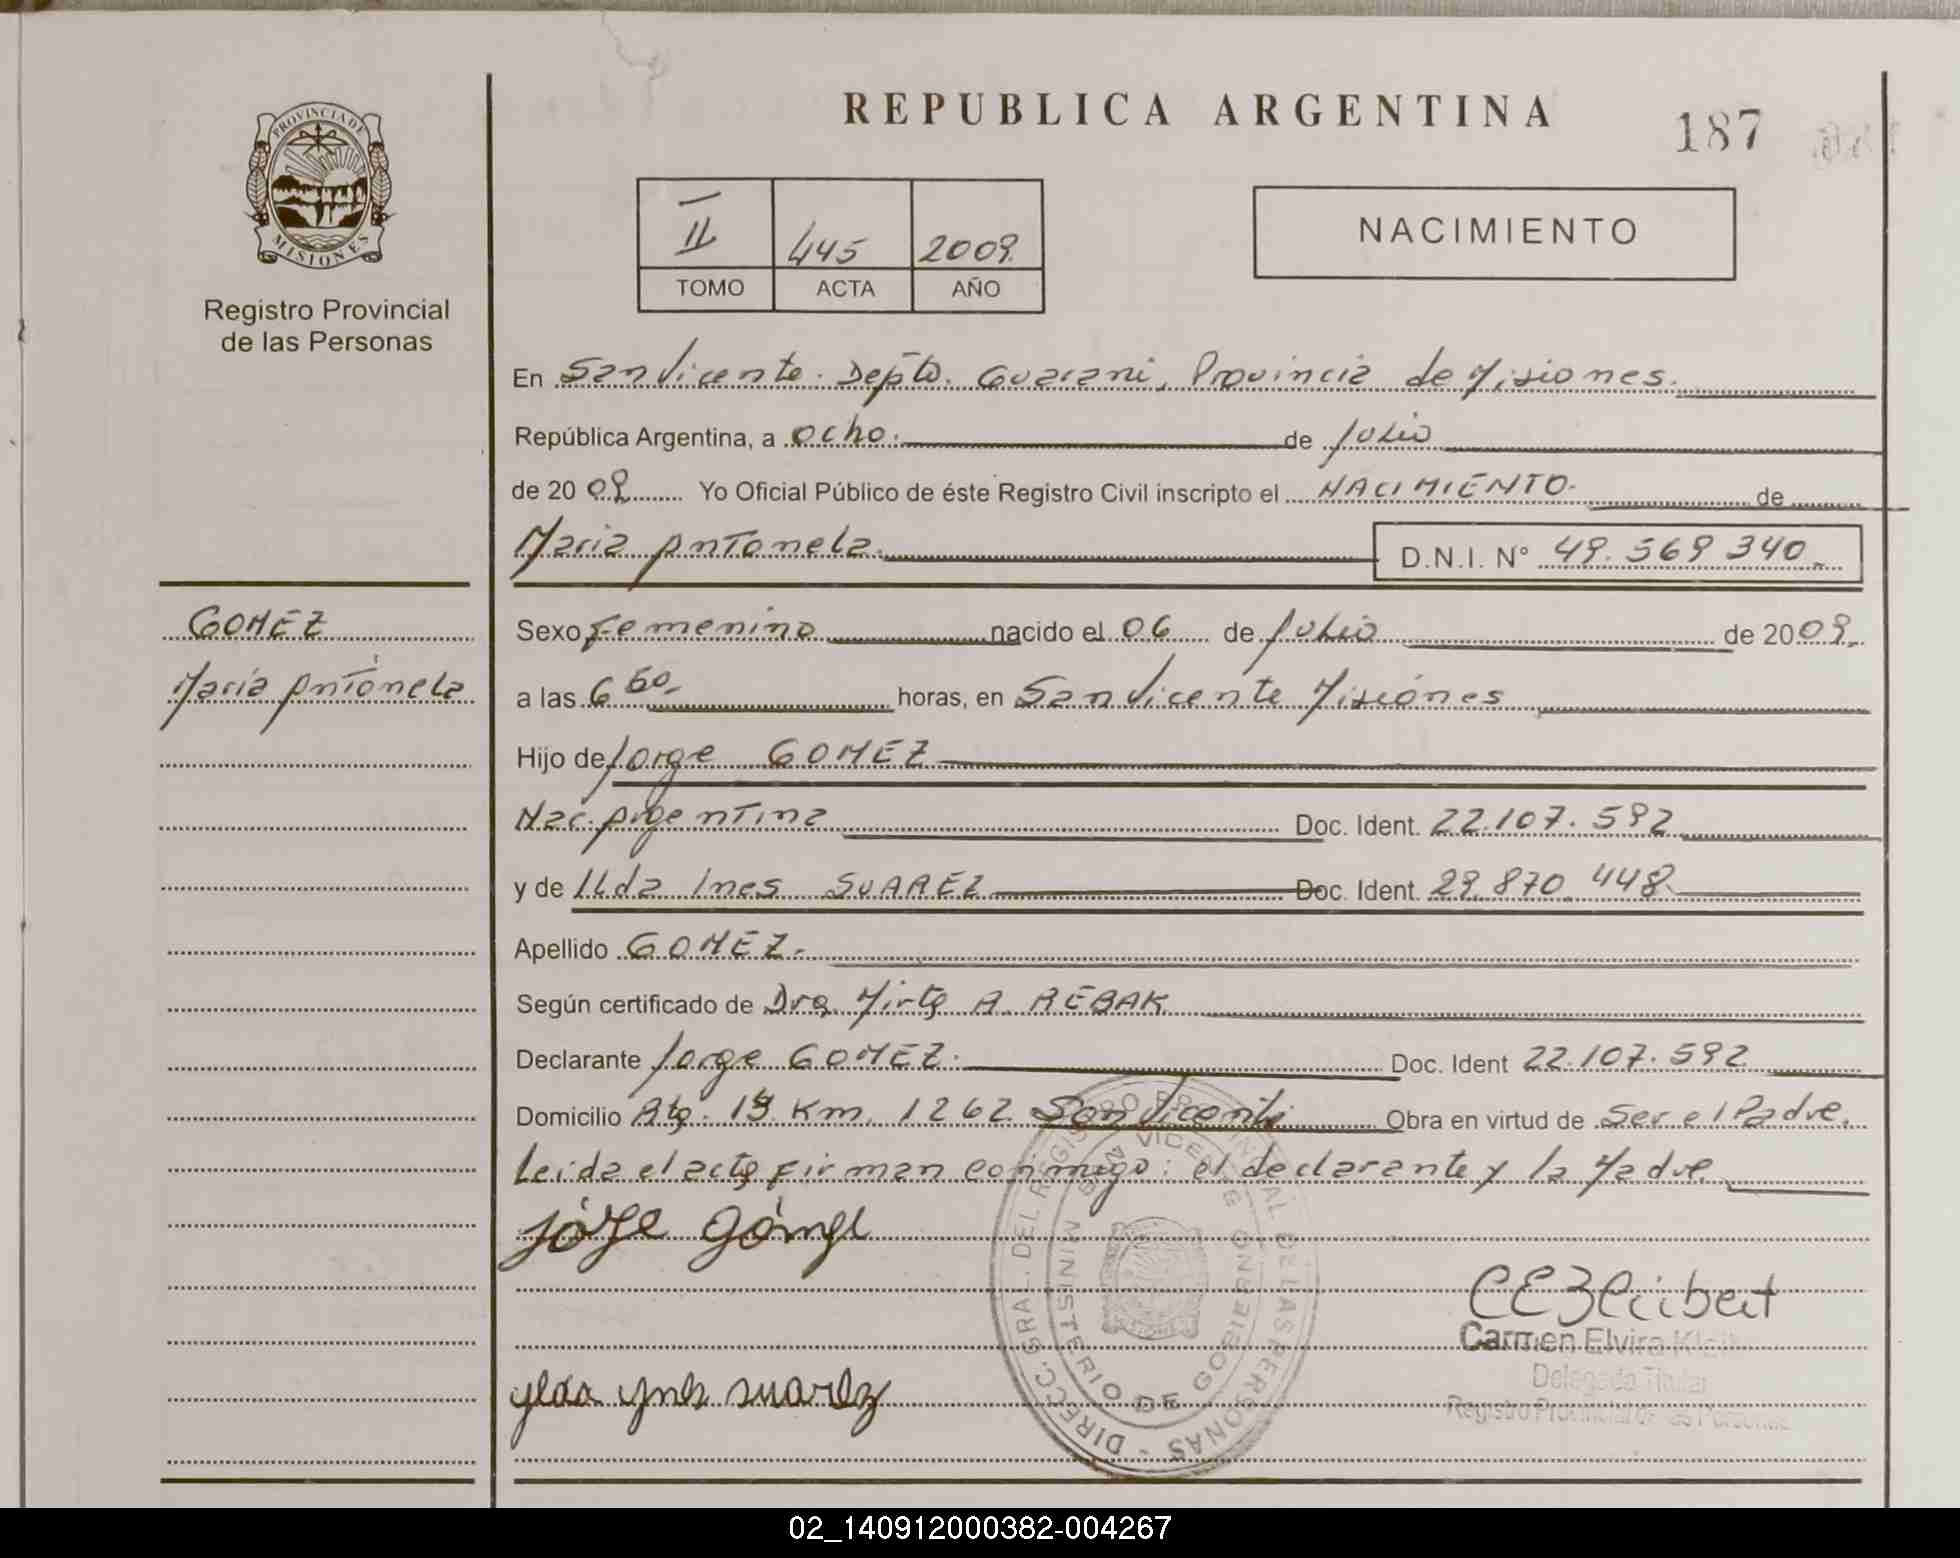 REPUBLICA ARGENTINA
187
PROVINCIA DE
MISIONES
Registro Provincial
de las Personas
II 445 2009
TOMO ACTA AÑO
NACIMIENTO
En San Vicente. Depto. Guarani, Provincia de Misiones.
República Argentina, a ocho. de Julio
de 2009 Yo Oficial Público de éste Registro Civil inscripto el NACIMIENTO. de
Maria Antonela. D.N.I. Nº 49.569340.
GOMEZ
Maria Antonela
Sexo Femenino nacido el 06 de Julio de 2009.
a las 6 horas, en San Vicente Misiones
Hijo de Jorge GOMEZ
Nac. Argentina Doc. Ident. 22.107.592
y de Ilda Ines SUAREZ Doc. Ident. 29.870 448.
Apellido GOMEZ.
Según certificado de Dra. Mirta A. REBAK
Declarante Jorge GOMEZ. Doc. Ident 22.107.592
Domicilio Rta. Km. 1262 San Vicente Obra en virtud de Ser el Padre.
Leida el acta firman conmigo: el declarante y la Madre.
jorge gómez
Carmen Elvira
Delegada Titular
Registro Provincial de las Personas
ylda ynes suarez
DIRECC. GRAL. DEL REGISTRO PROVINCIAL DE LAS PERSONAS -
MINISTERIO DE GOBIERNO
SAN VICENTE
02_140912000382-004267